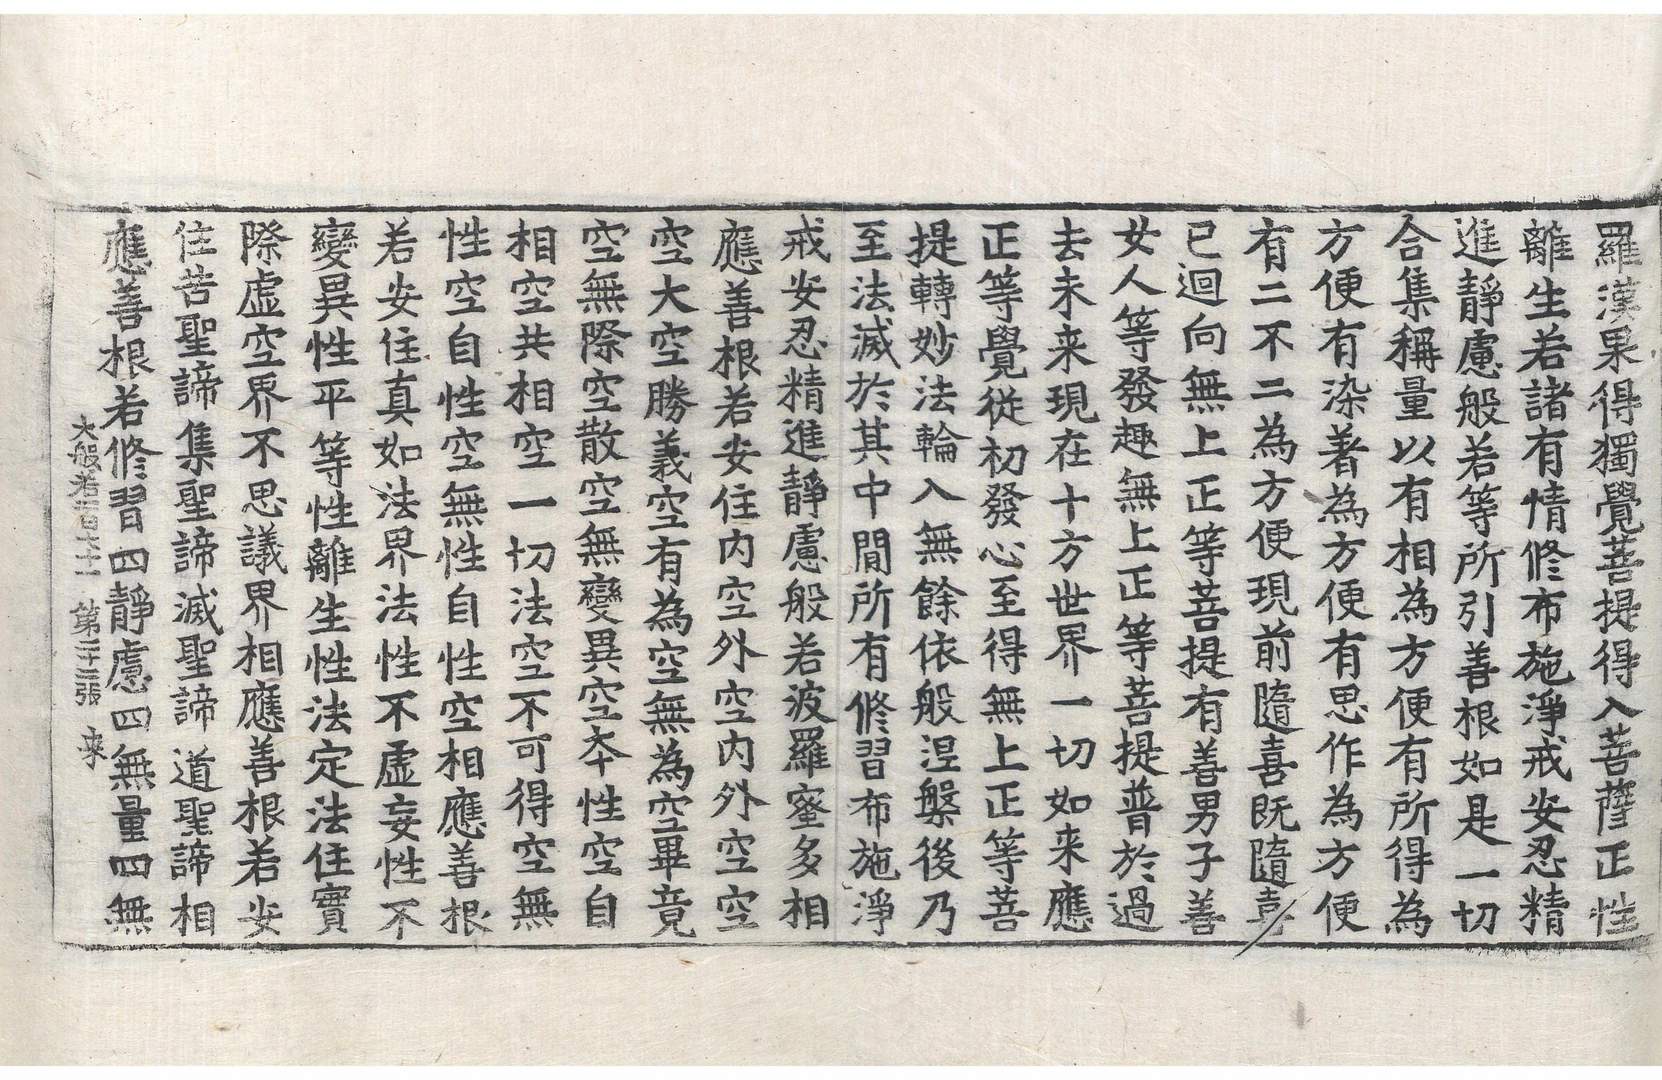 羅漢果得獨覺菩提得入菩薩正性
離生若諸有情修布施淨戒安忍精
進靜慮般若等所引善根如是一切
合集稱量以有相為方便有所得為
方便有染著為方便有思作為方便
有二不二為方便現前隨喜既隨喜
已迴向無上正等菩提有善男子善
女人等發趣無上正等菩提普於過
去未來現在十方世界一切如來應
正等覺從初發心至得無上正等菩
提轉妙法輪入無餘依般涅槃後乃
至法滅於其中間所有修習布施淨
戒安忍精進靜慮般若波羅蜜多相
應善根若安住內空外空內外空空
空大空勝義空有為空無為空畢竟
空無際空散空無變異空本性空自
相空共相空一切法空不可得空無
性空自性空無性自性空相應善根
若安住真如法界法性不虛妄性不
變異性平等性離生性法定法住實
際虛空界不思議界相應善根若安
住苦聖諦集聖諦滅聖諦道聖諦相
應善根若修習四靜慮四無量四無
大般若 第 張 來